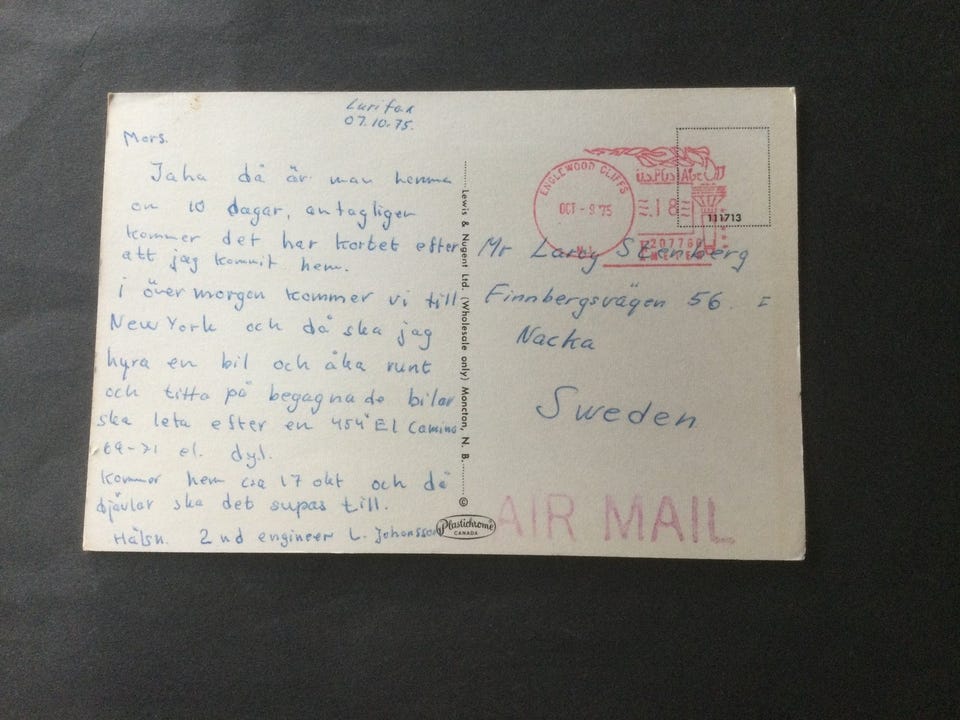 Lurifax
07.10.75.
Mors.
Jaha då är man hemma
om 10 dagar, antagligen
kommer det här kortet efter
att jag kommit hem.
i övermorgon kommer vi till
New York och då ska jag
hyra en bil och åka runt
och titta på begagnade bilar
ska leta efter en 454" El Camino
69-71 el. dyl.
kommer hem cra 17 okt och då
djävlar ska det supas till.
Hälsn. 2nd engineer L. Johansson
Lewis & Nugent Ltd. (Wholesale only) Moncton, N. B.
©
Plastichrome
CANADA
ENGLEWOOD CLIFFS
OCT-9'75
N.J.
U.S. POSTAGE
.18
METER
111713
Mr Larry Stenberg
Finnbergsvägen 56 =
Nacka
Sweden
AIR MAIL